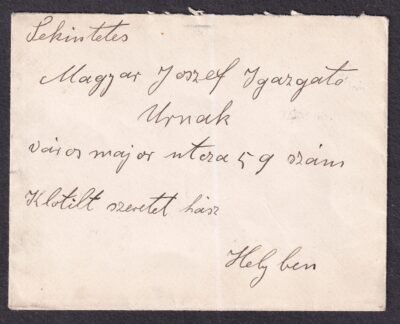 Tekintetes
Magyar Joszef Igazgato
Urnak
város major utcza 59 szám
Klotilt szeretet ház
Helyben